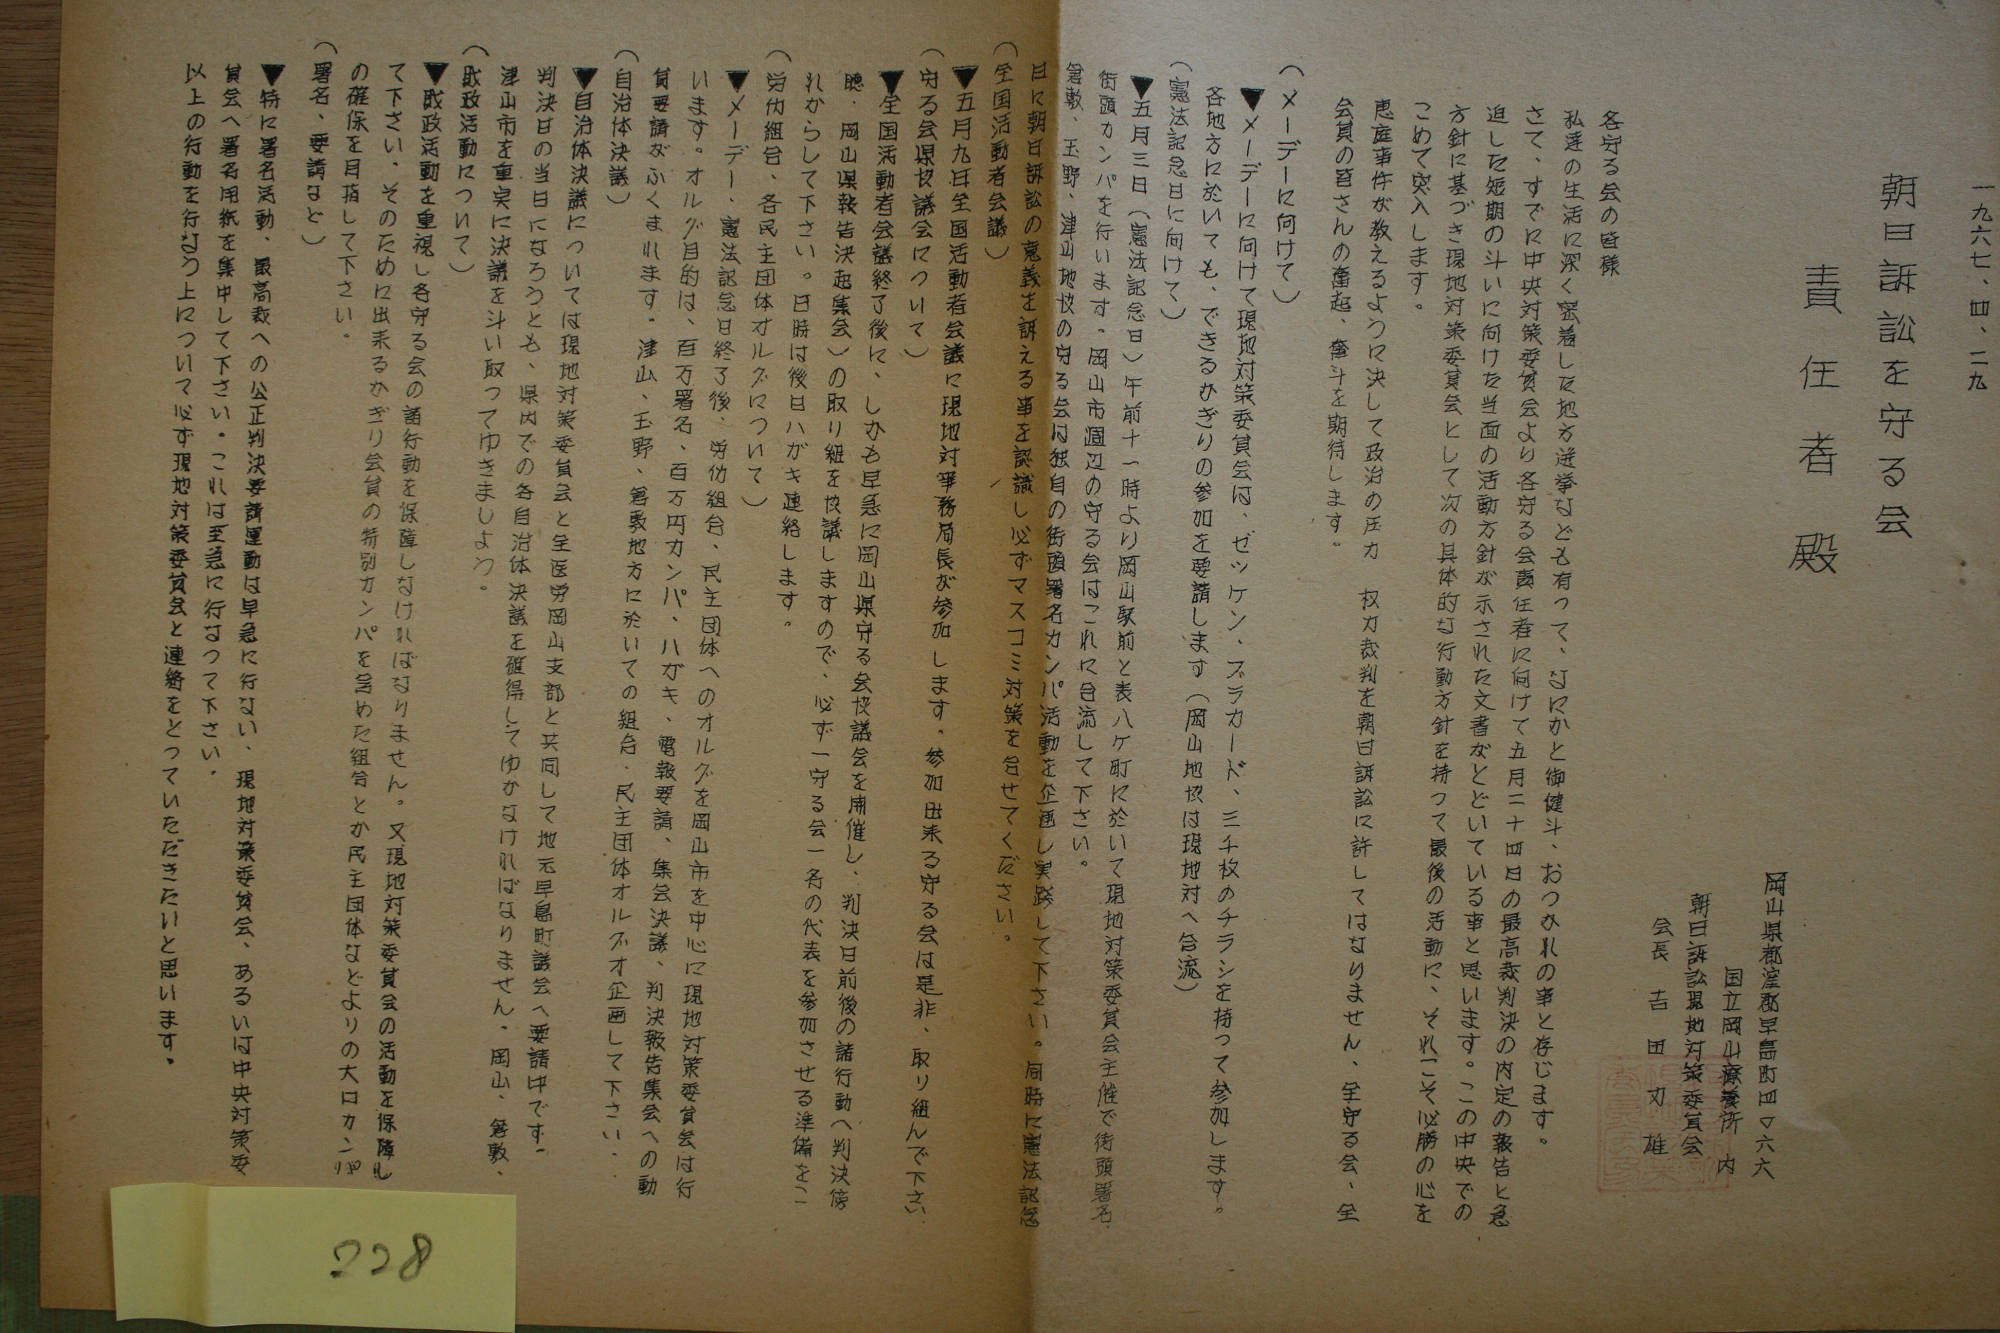 一九六七、四、二九
朝日訴訟を守る会
責任者殿
岡山県都窪郡早島町四▽六六
国立岡山療養所内
朝日訴訟現地対策委員会
会長 吉田力雄
各守る会の皆様
私達の生活に深く密着した地方選挙なども有って、なにかと御健斗、おつかれの事と存じます。
さて、すでに中央対策委員会より各守る会責任者に向けて五月二十四日の最高裁判決の内定の報告と急
迫した短期の斗いに向けた当面の活動方針が示された文書がとどいている事と思います。この中央での
方針に基づき現地対策委員会として次の具体的な行動方針を持って最後の活動に、それこそ必勝の心を
こめて突入します。
恵庭事件が教えるように決して政治の圧力 权力裁判を朝日訴訟に許してはなりません、全守る会、全
会員の皆さんの奮起、奮斗を期待します。
(メーデーに向けて)
▼メーデーに向けて現地対策委員会は、ゼッケン、プラカード、三千枚のチラシを持って参加します。
各地方に於いても、できるかぎりの参加を要請します(岡山地协は現地対へ合流)
(憲法記念日に向けて)
▼五月三日(憲法記念日)午前十一時より岡山駅前と表八ケ町に於いて現地対策委員会主催で街頭署名、
街頭カンパを行います。岡山市週辺の守る会はこれに合流して下さい。
倉敷、玉野、津山地协の守る会は独自の街頭署名カンパ活動を企画し実践して下さい。同時に憲法記念
日に朝日訴訟の意義を訴える事を認識し必ずマスコミ対策を合せてください。
(全国活動者会議)
▼五月九日全国活動者会議に現地対事務局長が参加します。参加出来る守る会は是非、取り組んで下さい。
(守る会県协議会について)
▼全国活動者会議終了後に、しかも早急に岡山県守る会协議会を開催し、判決日前後の諸行動へ判決傍
聴、岡山県報告決起集会)の取り組を协議しますので、必ず一守る会一名の代表を参加させる準備をこ
れからして下さい。日時は後日ハガキ連絡します。
(労仂組合、各民主団体オルグについて)
▼メーデー、憲法記念日終了後、労仂組合、民主団体へのオルグを岡山市を中心に現地対策委員会は行
います。オルグ目的は、百万署名、百万円カンパ、ハガキ、電報要請、集会決議、判決報告集会への動
員要請がふくまれます。津山、玉野、倉敷地方に於いての組合、民主団体オルグオ企画して下さい。
(自治体決議)
▼自治体決議については現地対策委員会と全医労岡山支部と共同して地元早島町議会へ要請中です。
判決日の当日になろうとも、県内での各自治体決議を確得してゆかなければなりません。岡山、倉敷、
津山市を重実に決議を斗い取ってゆきましょう。
(財政活動について)
▼財政活動を重視し各守る会の諸行動を保障しなければなりません。又現地対策委員会の活動を保障し
て下さい、そのために出来るかぎり会員の特別カンパを含めた組合とか民主団体などよりの大口カンパ
の確保を目指して下さい。
(署名、要請など)
▼特に署名活動、最高裁への公正判決要請運動は早急に行ない、現地対策委員会、あるいは中央対策委
員会へ署名用紙を集中して下さい。これは至急に行なって下さい。
以上の行動を行なう上について必ず現地対策委員会と連絡をとっていただきたいと思います。
228